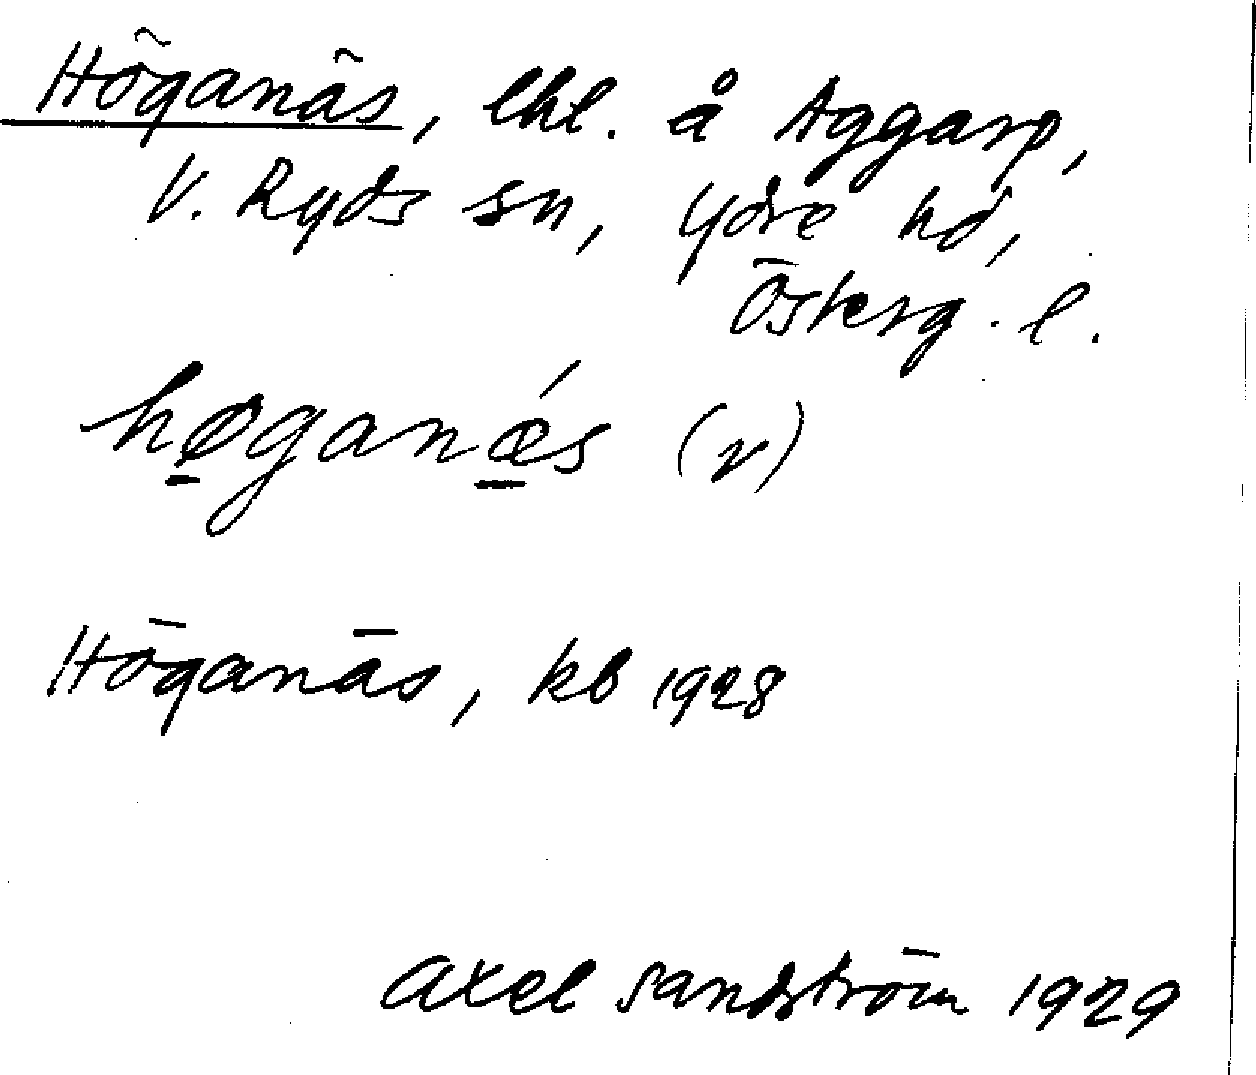 Höganäs, lhl. å Aggarp,
V. Ryds sn, Ydre hd,
Österg. l.
høganǽs (v)
Höganäs, kb 1928
Axel Sandström 1929